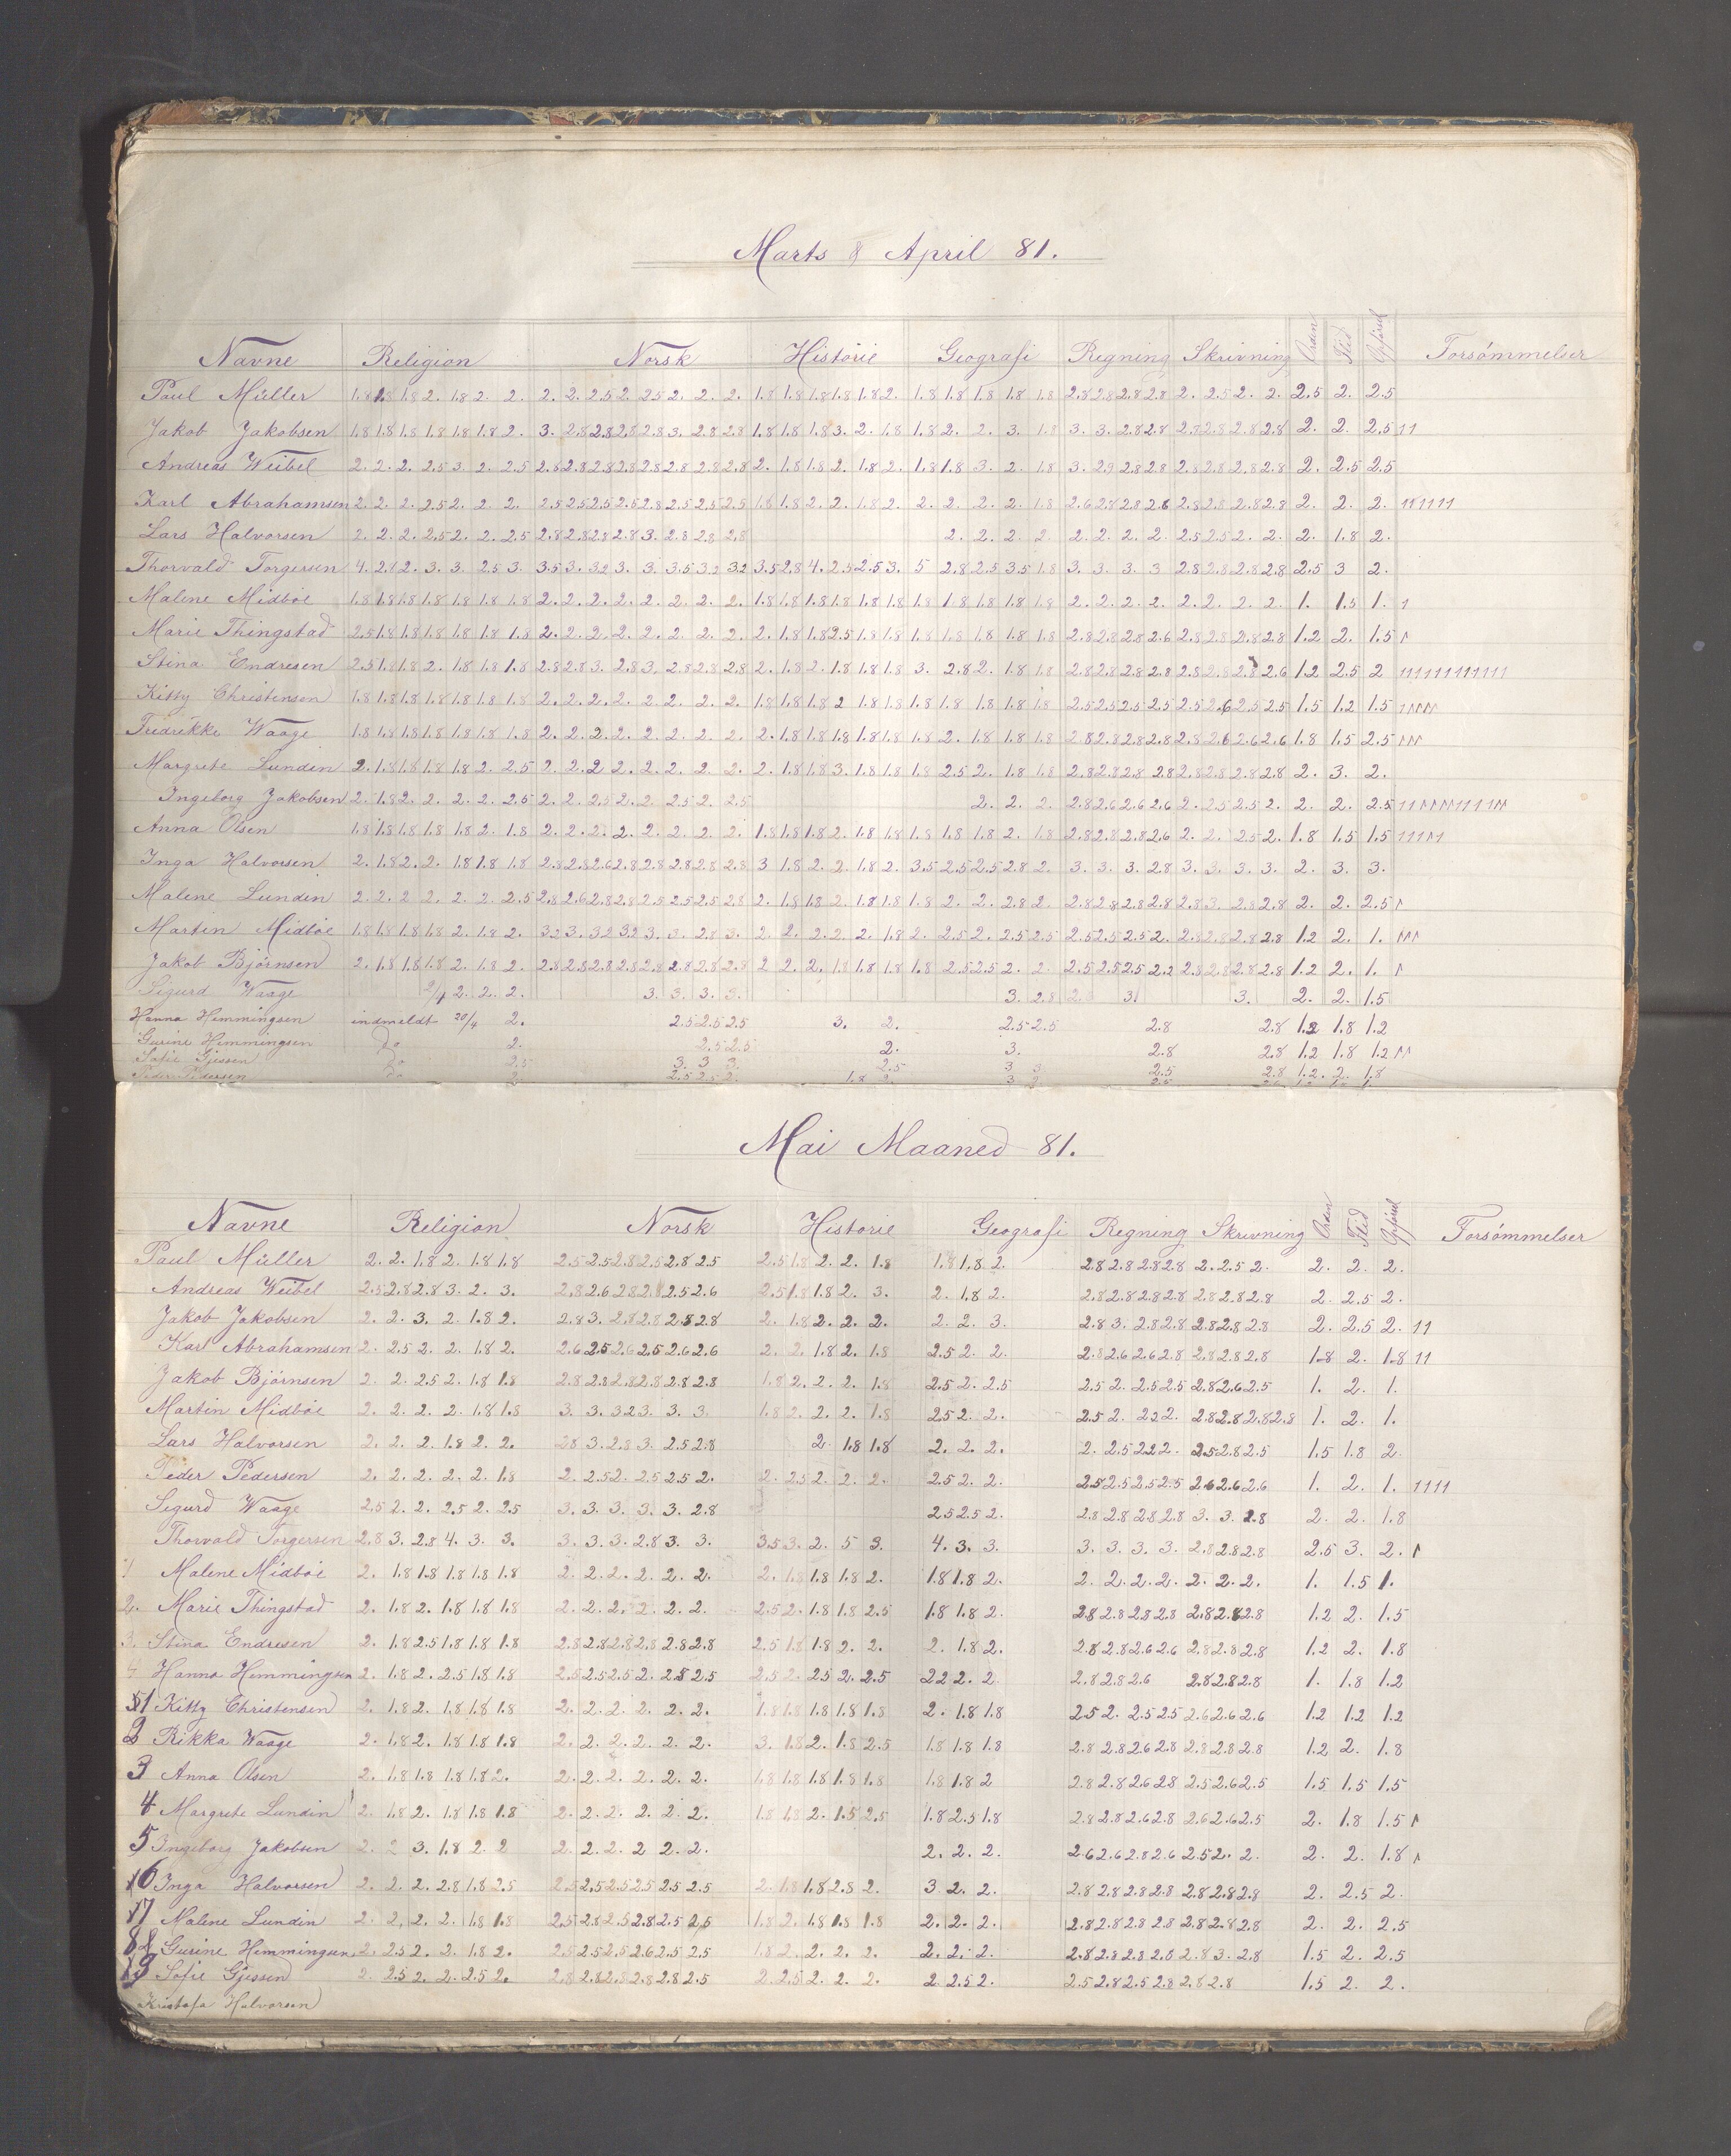 Marts & April 81.
Navne Religion Norsk Historie Geografi Regning Skrivning Orden Flid Opførsel Forsømmelser
Paul Müller 1.8 1.8 1.8 2. 1.8 2. 2. 2. 2. 2.5 2. 2.5 2. 2. 2. 1.8 1.8 1.8 1.8 1.8 2. 1.8 1.8 1.8 1.8 1.8 2.8 2.8 2.8 2.8 2. 2.5 2. 2. 2.5 2. 2.5
Jakob Jakobsen 1.8 1.8 1.8 1.8 1.8 1.8 2. 3. 2.8 2.8 2.8 2.8 3. 2.8 2.8 1.8 1.8 1.8 3. 2. 1.8 1.8 2. 2. 3. 1.8 3. 3. 2.8 2.8 2.8 2.8 2.8 2.8 2. 2. 2.5 11
Andreas Weibel 2. 2. 2. 2.5 3 2. 2.5 2.8 2.8 2.8 2.8 2.8 2.8 2.8 2.8 2. 1.8 1.8 2. 1.8 2. 1.8 1.8 3. 2. 1.8 3. 2.9 2.8 2.8 2.8 2.8 2.8 2.8 2. 2.5 2.5
Karl Abrahamsen 2. 2. 2. 2.5 2. 2. 2. 2.5 2.5 2.5 2.5 2.8 2.5 2.5 2.5 1.8 1.8 2. 2. 1.8 2. 2. 2. 2. 2. 1.8 2.6 2.8 2.8 2.6 2.8 2.8 2.8 2.8 2. 2. 2. 111111
Lars Halvorsen 2. 2. 2. 2.5 2. 2. 2.5 2.8 2.8 2.8 2.8 3. 2.8 2.8 2.8 2. 2. 2. 2. 2. 2. 2. 2. 2.5 2.5 2. 2. 2. 1.8 2.
Thorvald Torgersen 4. 2.8 2. 3. 3. 2.5 3. 3.5 3. 3.2 3. 3. 3.5 3.2 3.2 3.5 2.8 4. 2.5 2.5 3. 5 2.8 2.5 3.5 1.8 3. 3. 3. 3 2.8 2.8 2.8 2.8 2.5 3 2.
Malene Midböe 1.8 1.8 1.8 1.8 1.8 1.8 1.8 2. 2. 2. 2. 2. 2. 2. 2. 1.8 1.8 1.8 1.8 1.8 1.8 1.8 1.8 1.8 1.8 1.8 2. 2. 2. 2. 2. 2. 2. 2. 1. 1.5 1. 1
Marie Thingstad 2.5 1.8 1.8 1.8 1.8 1.8 1.8 2. 2. 2. 2. 2. 2. 2. 2. 2. 1.8 1.8 2.5 1.8 1.8 1.8 1.8 1.8 1.8 1.8 2.8 2.8 2.8 2.6 2.8 2.8 2.8 2.8 1.2 2. 1.5 1
Stina Endresen 2.5 1.8 1.8 2. 1.8 1.8 1.8 2.8 2.8 3. 2.8 3. 2.8 2.8 2.8 2. 1.8 2. 1.8 1.8 1.8 3. 2.8 2. 1.8 1.8 2.8 2.8 2.8 2.8 2.8 2.8 2.8 2.6 1.2 2.5 2 111111111111
Kitty Christensen 1.8 1.8 1.8 1.8 1.8 1.8 1.8 2. 2. 2. 2. 2. 2. 2. 2. 1.8 1.8 1.8 2 1.8 1.8 1.8 1.8 1.8 1.8 1.8 2.5 2.5 2.5 2.5 2.5 2.6 2.5 2.5 1.5 1.2 1.5 1111
Fredrikke Waage 1.8 1.8 1.8 1.8 1.8 1.8 1.8 2. 2. 2. 2. 2. 2. 2. 2. 2. 1.8 1.8 1.8 1.8 1.8 1.8 2. 1.8 1.8 1.8 2.8 2.8 2.8 2.8 2.8 2.6 2.6 2.6 1.8 1.5 2.5 111
Margrete Lundin 2. 1.8 1.8 1.8 1.8 2. 2.5 2. 2. 2 2. 2. 2. 2. 2. 2. 1.8 1.8 3. 1.8 1.8 1.8 2.5 2. 1.8 1.8 2.8 2.8 2.8 2.8 2.8 2.8 2.8 2.8 2. 3. 2.
Ingeborg Jakobsen 2. 1.8 2. 2. 2. 2. 2.5 2. 2. 2.5 2. 2. 2.5 2. 2.5 2. 2. 2. 2.8 2.6 2.6 2.6 2. 2.5 2.5 2. 2. 2. 2.5 11111111111
Anna Olsen 1.8 1.8 1.8 1.8 1.8 2. 1.8 2. 2. 2. 2. 2. 2. 2. 2. 1.8 1.8 1.8 2. 1.8 1.8 1.8 1.8 1.8 2. 1.8 2.8 2.8 2.8 2.6 2. 2. 2.5 2. 1.8 1.5 1.5 11111
Inga Halvorsen 2. 1.8 2. 2. 1.8 1.8 1.8 2.8 2.8 2.6 2.8 2.8 2.8 2.8 2.8 3 1.8 2. 2. 1.8 2. 3.5 2.5 2.5 2.8 2. 3. 3. 3. 2.8 3. 3. 3. 3. 2. 3. 3.
Malene Lunden 2. 2. 2 2. 2. 2. 2.5 2.8 2.6 2.8 2.8 2.5 2.5 2.5 2.8 2. 1.8 1.8 2. 1.8 1.8 1.8 2. 2. 2.8 2. 2.8 2.8 2.8 2.8 2.8 3. 2.8 2.8 2. 2. 2.5 1
Martin Midböe 1.8 1.8 1.8 1.8 2. 1.8 2. 3.2 3. 3.2 3.2 3. 3. 2.8 3. 2. 2. 2. 2. 2. 1.8 2. 2.5 2. 2.5 2.5 2.5 2.5 2.5 2. 2.8 2.8 2.8 2.8 1.2 2. 1. 111
Jakob Björnsen 2. 1.8 1.8 1.8 2. 1.8 2. 2.8 2.8 2.8 2.8 2.8 2.8 2.8 2.8 2 2. 2. 1.8 1.8 1.8 1.8 2.5 2.5 2. 2. 2.5 2.5 2.5 2.2 2.8 2.8 2.8 2.8 1.2 2. 1. 1
Sigurd Waage 2/4 2. 2. 2. 3. 3. 3. 3. 3. 2.8 2. 3. 3. 2. 2. 1.5
Hanna Hemmingsen indmeldt 20/4 2. 2.5 2.5 2.5 3. 2. 2.5 2.5 2.8 2.8 1.2 1.8 1.2
Gurine Hemmingsen do 2. 2.5 2.5 2. 3. 2.8 2.8 1.2 1.8 1.2 11
Sofie Gjessen do 2.5 3. 3 3. 2.5 3 3. 2.5 2.8 1.2. 2. 1.8
Peder Pedersen do 2. 2.5 2.5 2. 1.8 2. 3 2.
Mai Maaned 81.
Navne Religion Norsk Historie Geografi Regning Skrivning Orden Flid Opførsel Forsømmelser
Paul Müller 2. 2. 1.8 2. 1.8 1.8 2.5 2.5 2.8 2.5 2.8 2.5 2.5 1.8 2. 2. 1.8 1.8 1.8 2. 2.8 2.8 2.8 2.8 2. 2.5 2. 2. 2. 2.
Andreas Weibel 2.5 2.8 2.8 3. 2. 3. 2.8 2.6 2.8 2.8 2.5 2.6 2.5 1.8 1.8 2. 3. 2. 1.8 2. 2.8 2.8 2.8 2.8 2.8 2.8 2.8 2. 2.5 2.
Jakob Jakobsen 2. 2. 3. 2. 1.8 2. 2.8 3. 2.8 2.8 2.8 2.8 2. 1.8 2. 2. 2. 2. 2. 3. 2.8 3. 2.8 2.8 2.8 2.8 2.8 2. 2.5 2. 11
Karl Abrahamsen 2. 2.5 2. 2. 1.8 2. 2.6 2.5 2.6 2.5 2.6 2.6 2. 2. 1.8 2. 1.8 2.5 2. 2. 2.8 2.6 2.6 2.8 2.8 2.8 2.8 1.8 2. 1.8 11
Jakob Björnsen 2. 2. 2.5 2. 1.8 1.8 2.8 2.8 2.8 2.8 2.8 2.8 1.8 2. 2. 2. 1.8 2.5 2. 2.5 2.5 2. 2.5 2.5 2.8 2.6 2.5 1. 2. 1.
Martin Midböe 2. 2. 2. 2. 1.8 1.8 3. 3. 3.2 3. 3. 3. 1.8 2. 2. 2. 1.8 2.5 2. 2. 2.5 2. 2.2 2. 2.8 2.8 2.8 2.8 1. 2. 1.
Lars Halvorsen 2. 2. 2. 1.8 2. 2. 2.8 3. 2.8 3. 2.5 2.8 2. 1.8 1.8 2. 2. 2. 2. 2.5 2.2 2. 2.5 2.8 2.5 1.5 1.8 2.
Peder Pedersen 2. 2. 2. 2. 2. 1.8 2. 2.5 2. 2.5 2.5 2. 2. 2.5 2. 2. 2. 2.5 2. 2. 2.5 2.5 2.5 2.5 2.6 2.6 2.6 1. 2. 1. 1111
Sigurd Waage 2.5 2. 2. 2.5 2. 2.5 3. 3. 3. 3. 3. 2.8 2.5 2.5 2. 2.8 2.8 2.8 2.8 3. 3. 2.8 2. 2. 1.8
Thorvald Torgersen 2.8 3. 2.8 4. 3. 3. 3. 3. 3. 2.8 3. 3. 3.5 3. 2. 5 3. 4. 3. 3. 3. 3. 3. 3. 2.8 2.8 2.8 2.5 3. 2. 1
1 Malene Midböe 2. 1.8 1.8 1.8 1.8 1.8 2. 2. 2. 2. 2. 2. 2. 1.8 1.8 1.8 2. 1.8 1.8 2. 2. 2. 2. 2. 2. 2. 2. 1. 1.5 1.
2. Marie Thingstad 2. 1.8 2. 1.8 1.8 1.8 2. 2. 2. 2. 2. 2. 2.5 2. 1.8 1.8 2.5 1.8 1.8 2. 2.8 2.8 2.8 2.8 2.8 2.8 2.8 1.2 2. 1.5
3. Stina Endresen 2. 1.8 2.5 1.8 1.8 1.8 2.8 2.8 2.8 2.8 2.8 2.8 2.5 1.8 1.8 2. 2. 2. 1.8 2. 2.8 2.8 2.6 2.6 2.8 2.8 2.8 1.2 2. 1.8
4 Hanna Hemmingsen 2. 1.8 2. 2.5 1.8 1.8 2.5 2.5 2.5 2. 2.8 2.5 2.5 2. 2.5 2. 2.5 2.2 2. 2. 2.8 2.8 2.6 2.8 2.8 2.8 1. 1.8 1.2
51 Kitty Christensen 2. 1.8 2. 1.8 1.8 1.8 2. 2. 2. 2. 2. 2. 1.8 1.8 1.8 1.8 1.8 2. 1.8 1.8 2.5 2. 2.5 2.5 2.6 2.6 2.6 1.2 1.2 1.2
2 Rikka Waage 2. 1.8 2. 1.8 1.8 1.8 2. 2. 2. 2. 2. 2. 3. 1.8 2. 1.8 2.5 1.8 1.8 1.8 2.8 2.8 2.6 2.8 2.8 2.8 2.8 1.2 2. 1.8
3 Anna Olsen 2. 1.8 1.8 1.8 1.8 2. 2. 2. 2. 2. 2. 2. 1.8 1.8 1.8 1.8 1.8 1.8 1.8 2 2.8 2.8 2.6 2.8 2.5 2.6 2.5 1.5 1.5 1.5
4 Margrete Lundin 2. 1.8 2. 1.8 1.8 1.8 2. 2. 2. 2. 2. 2. 1.8 1.8 2. 1.5 2.5 1.8 2.5 1.8 2.8 2.8 2.6 2.8 2.6 2.6 2.5 2. 1.8 1.5 1
5 Ingeborg Jakobsen 2. 2 3. 1.8 2. 2 2. 2. 2. 2 2. 2. 2. 2. 2. 2.6 2.6 2.8 2.6 2.5 2. 2. 2. 2. 1.8 1
6 Inga Halvorsen 2. 2. 2. 2.8 1.8 2.5 2.5 2.5 2.5 2.5 2.5 2.5 2. 1.8 1.8 2.8 2. 3 2. 2. 2.8 2.8 2.8 2.8 2.8 2.8 2.8 2. 2.5 2.
7 Malene Lundin 2. 2. 2. 2. 1.8 1.8 2.5 2.8 2.5 2.8 2.5 2.5 1.8 2. 1.8 1.8 1.8 2. 2. 2. 2.8 2.8 2.8 2.8 2.8 2.8 2.8 2. 2. 2.5
8 Gurine Hemmingsen 2. 2.5 2. 2. 1.8 2. 2.5 2.5 2.5 2.6 2.5 2.5 1.8 2. 2. 2. 2. 2. 2. 2. 2.8 2.8 2.8 2.8 2.8 3. 2.8 1.5 2. 2.5
9 Sofie Gjessen 2. 2.5 2. 2. 2.5 2. 2.8 2.8 2.8 2.8 2.8 2.5 2. 2.5 2. 2. 2. 2. 2.5 2. 2.5 2.8 2.5 2.8 2.8 2.8 1.5 2. 2.
Kristofa Halvorsen